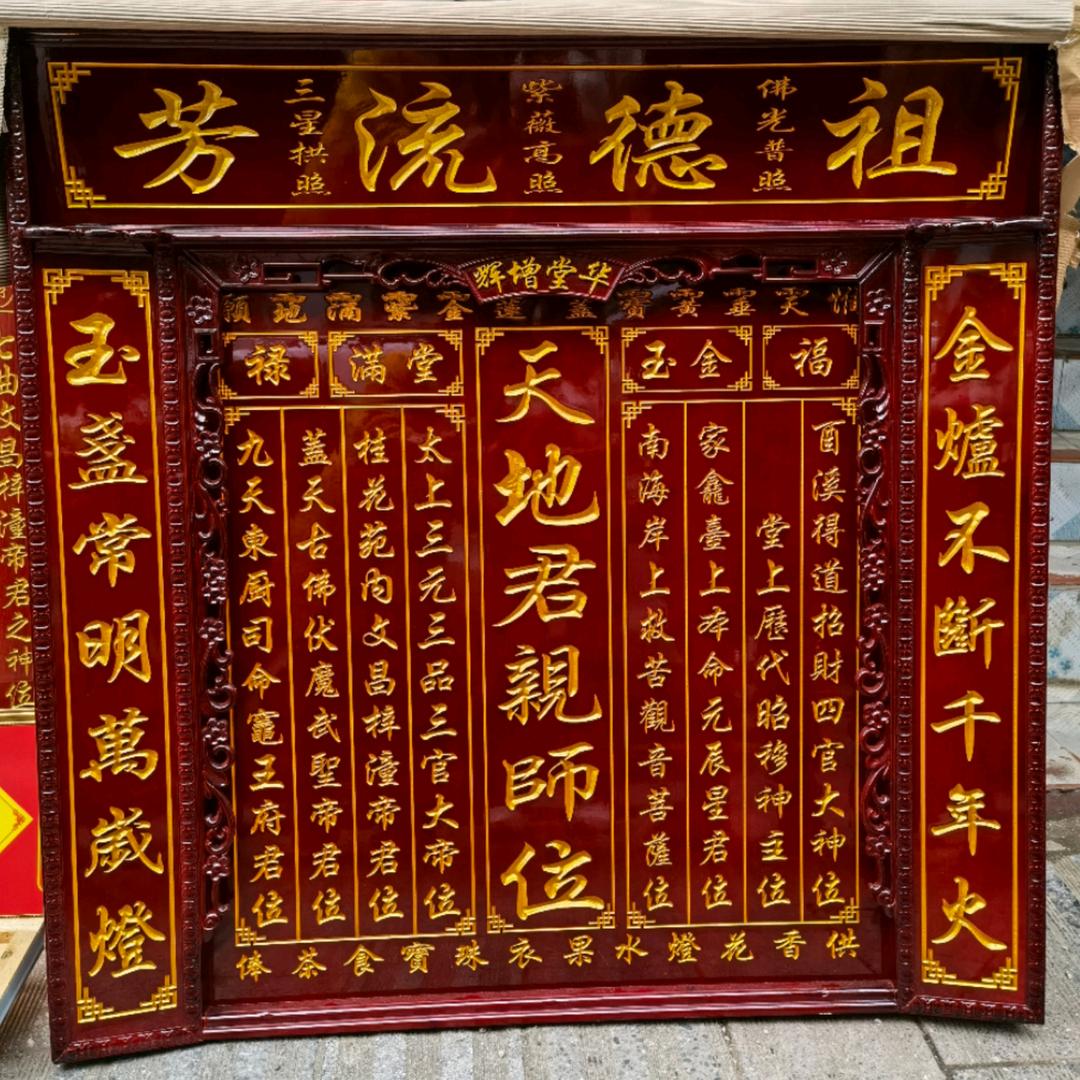 祖德流芳
佛光普照
紫薇高照
三星拱照
华堂增辉
金爐不斷千年火
福
金玉
堂滿
禄
酉溪得道招財四官大神位
堂上歷代昭穆神主位
家龕臺上本命元辰星君位
南海岸上救苦觀音菩薩位
天地君親師位
太上三元三品三官大帝位
桂花苑内文昌梓潼帝君位
蓋天古佛伏魔武聖帝君位
九天東厨司命竈王府君位
供香花燈水果衣珠寶食茶俸
玉盞常明萬歲燈
七曲文昌梓潼帝君之神位